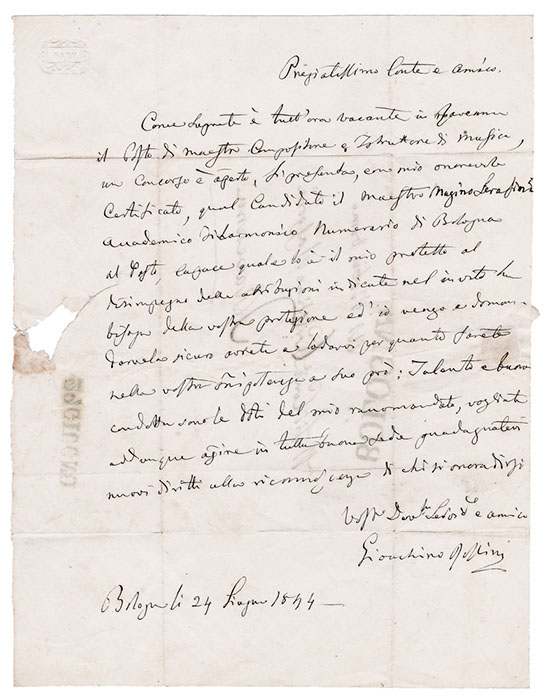 Pregiatissimo Conte e amico.
Come sapete è tutt'ora vacante in Ravenna
il Posto di maestro Compositore e Istruttore di musica,
un Concorso è aperto, si presenta, con mio onorevole
Certificato, qual Candidato il Maestro
Accademico Filarmonico Numerario di Bologna
al Posto, capace quale lo è il mio protetto al
disimpegno delle attribuzioni indicate nel invito ha
bisogno della vostra protezione ed'io vengo a doman-
darvela sicuro avrete a lodarvi per quanto farete
nella vostra a suo prò; Talento e buona
condotta sono le Doti del mio raccomandato, vogliate
addunque agire in tutta buona fede guadagnatevi
nuovi diritti alla riconoscenza di chi si onora dirsi
Vostro e amico
Gioachino Rossini
Bologna li 24 Giugno 1844